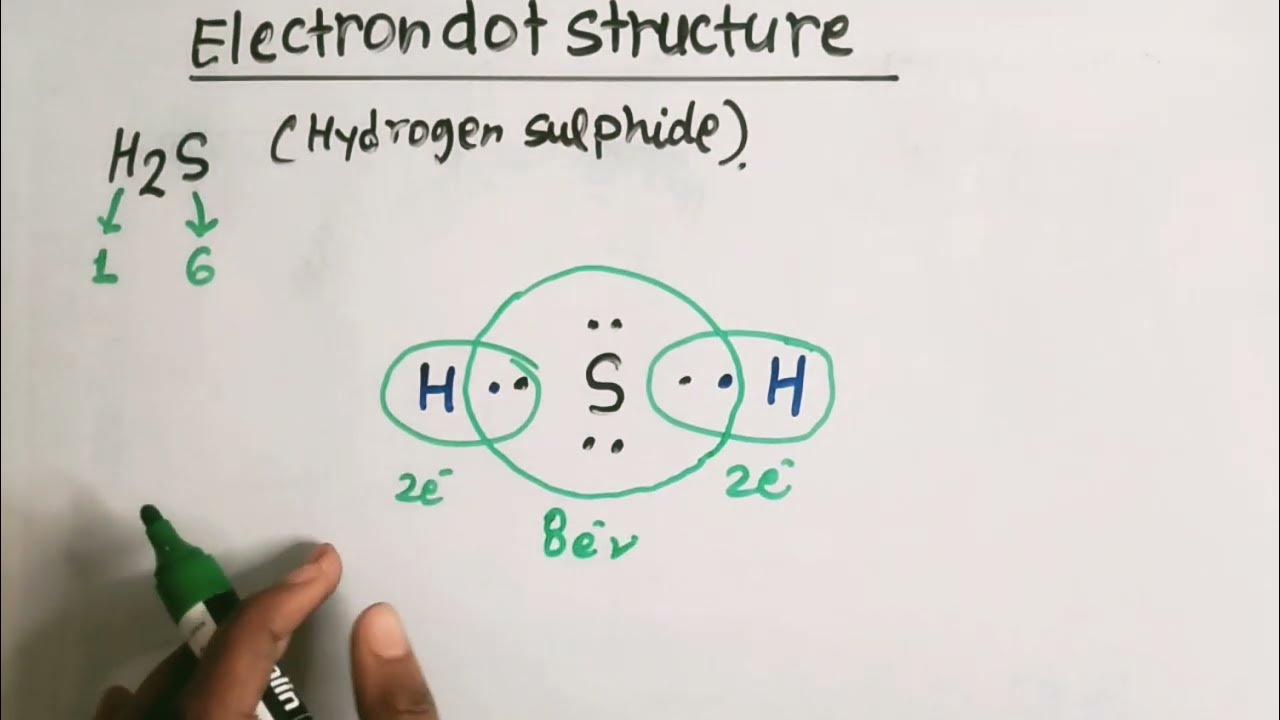 Electron dot structure
H2S (Hydrogen sulphide).
1 6
H S H
2e⁻ 2e⁻
8e⁻